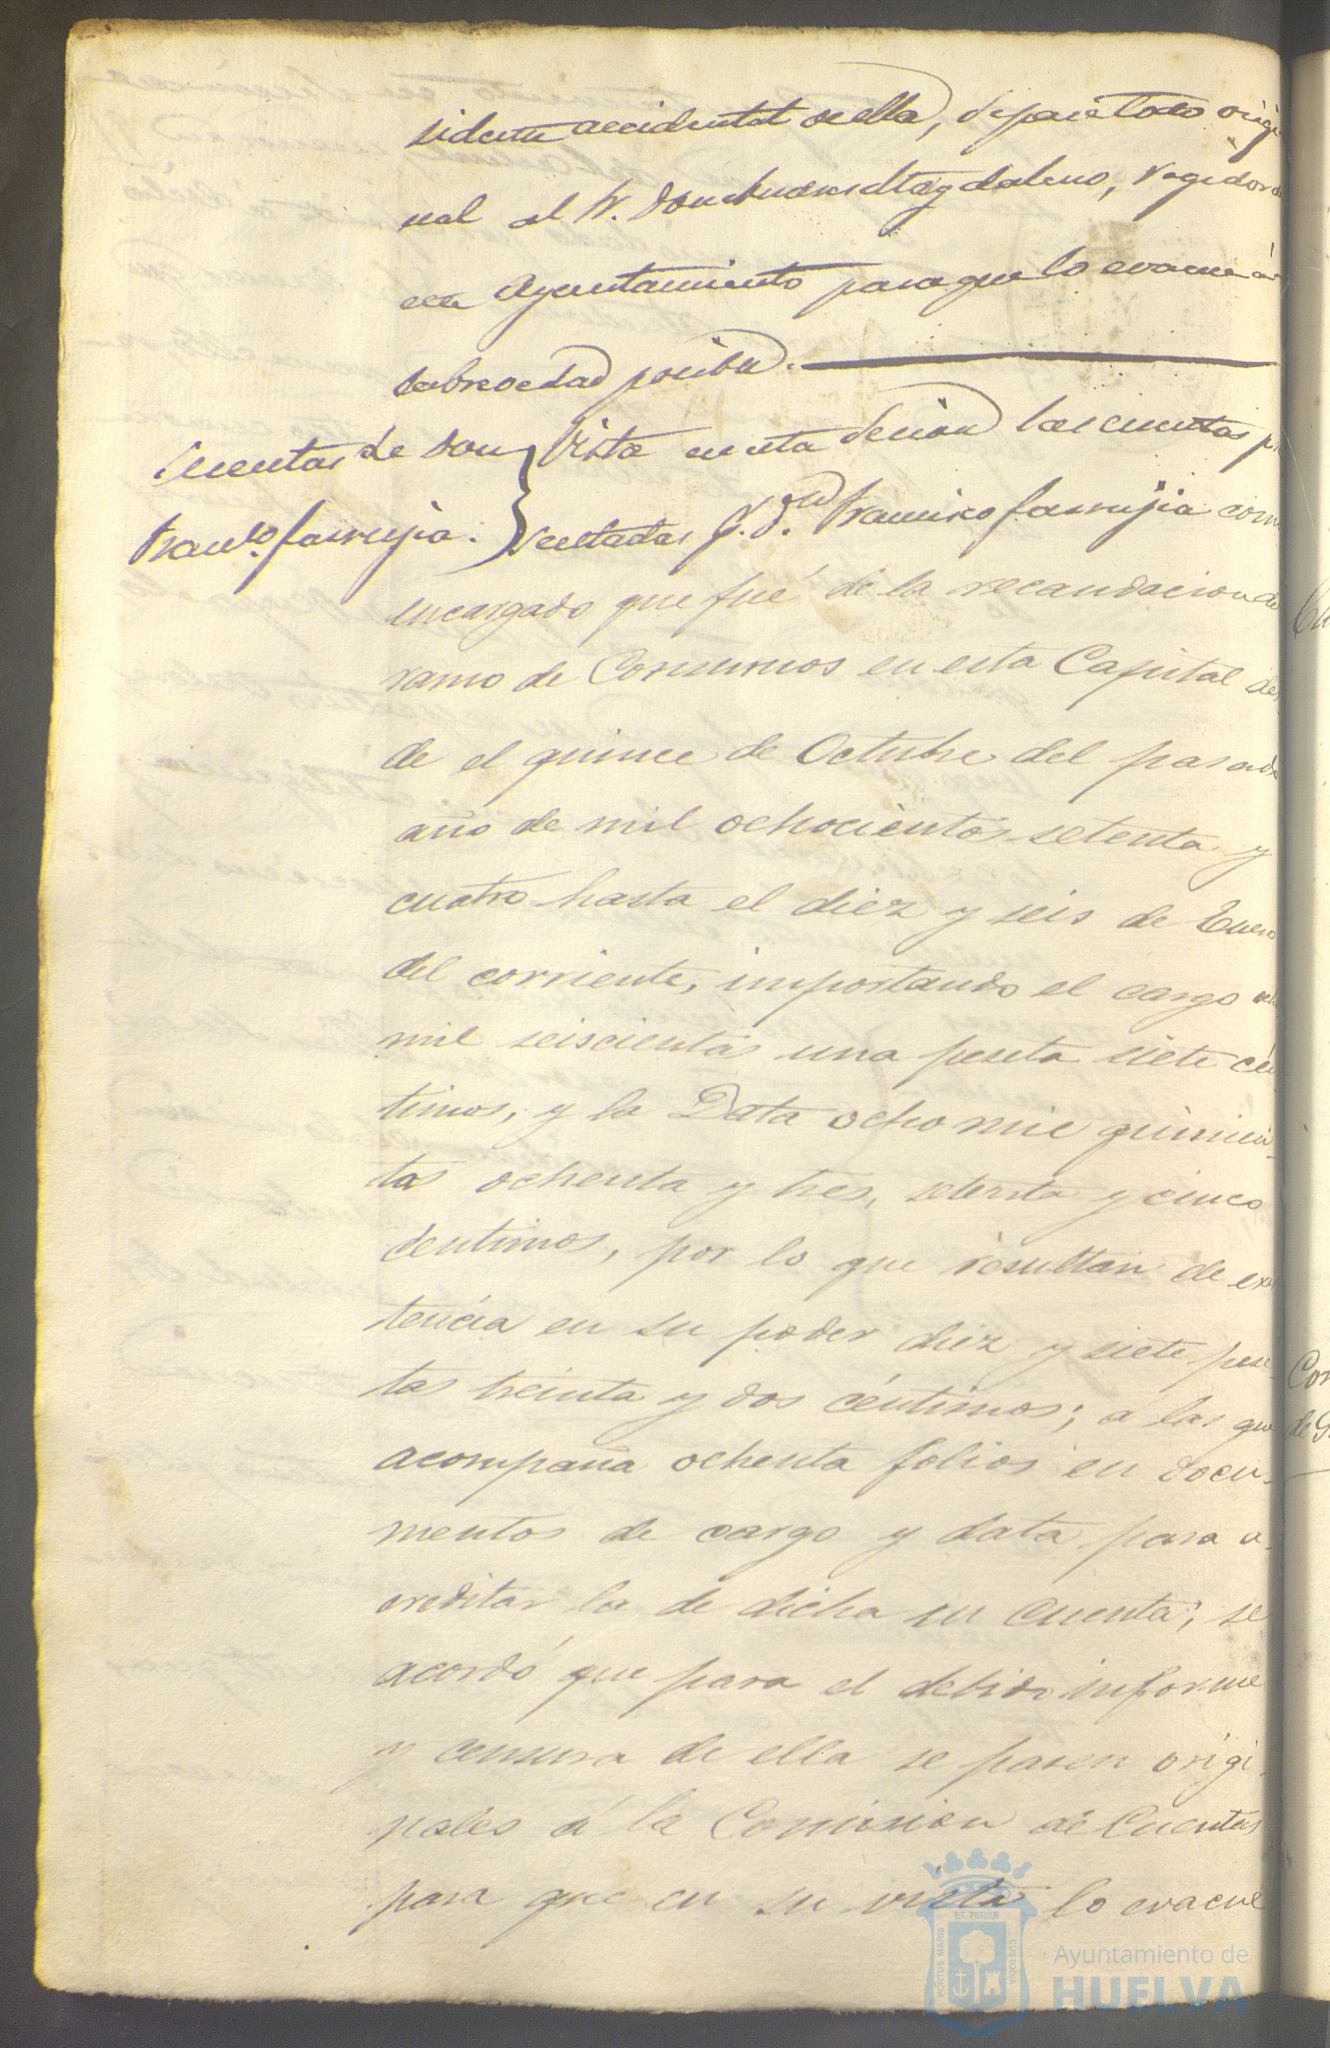 sidente accidental de ella, se pase todo origi
nal al Sr. Don Juan Magdaleno, regidor de
este Ayuntamiento para que lo evacue á
la brevedad posible.
Cuentas de Don
Franco. Farrujia.
Vista en esta sesion las cuentas pre
sentadas p. Dn. Francisco Farrujia como
encargado que fué de la recaudacion del
ramo de Consumos en esta Capital des-
de el quince de Octubre del pasado
año de mil ochocientos setenta y
cuatro hasta el diez y seis de Enero
del corriente, importando el cargo
mil seiscientas una peseta siete cén-
timos, y la Data ocho mil quinien-
tas ochenta y tres, setenta y cinco
centimos, por lo que resultan de exis
tencia en su poder diez y siete pese-
tas treinta y dos céntimos; a las que
acompaña ochenta folios en docu-
mentos de cargo y data para a-
creditar la de dicha su cuenta; se
acordó que para el debido informe
y censura de ella se pasen origi-
nales á la Comision de Cuentas
para que en su vista lo evacue
Con
de G
PORTUS MARIS
ET TERRÆ
CUSTODIA
Ayuntamiento de
HUELVA